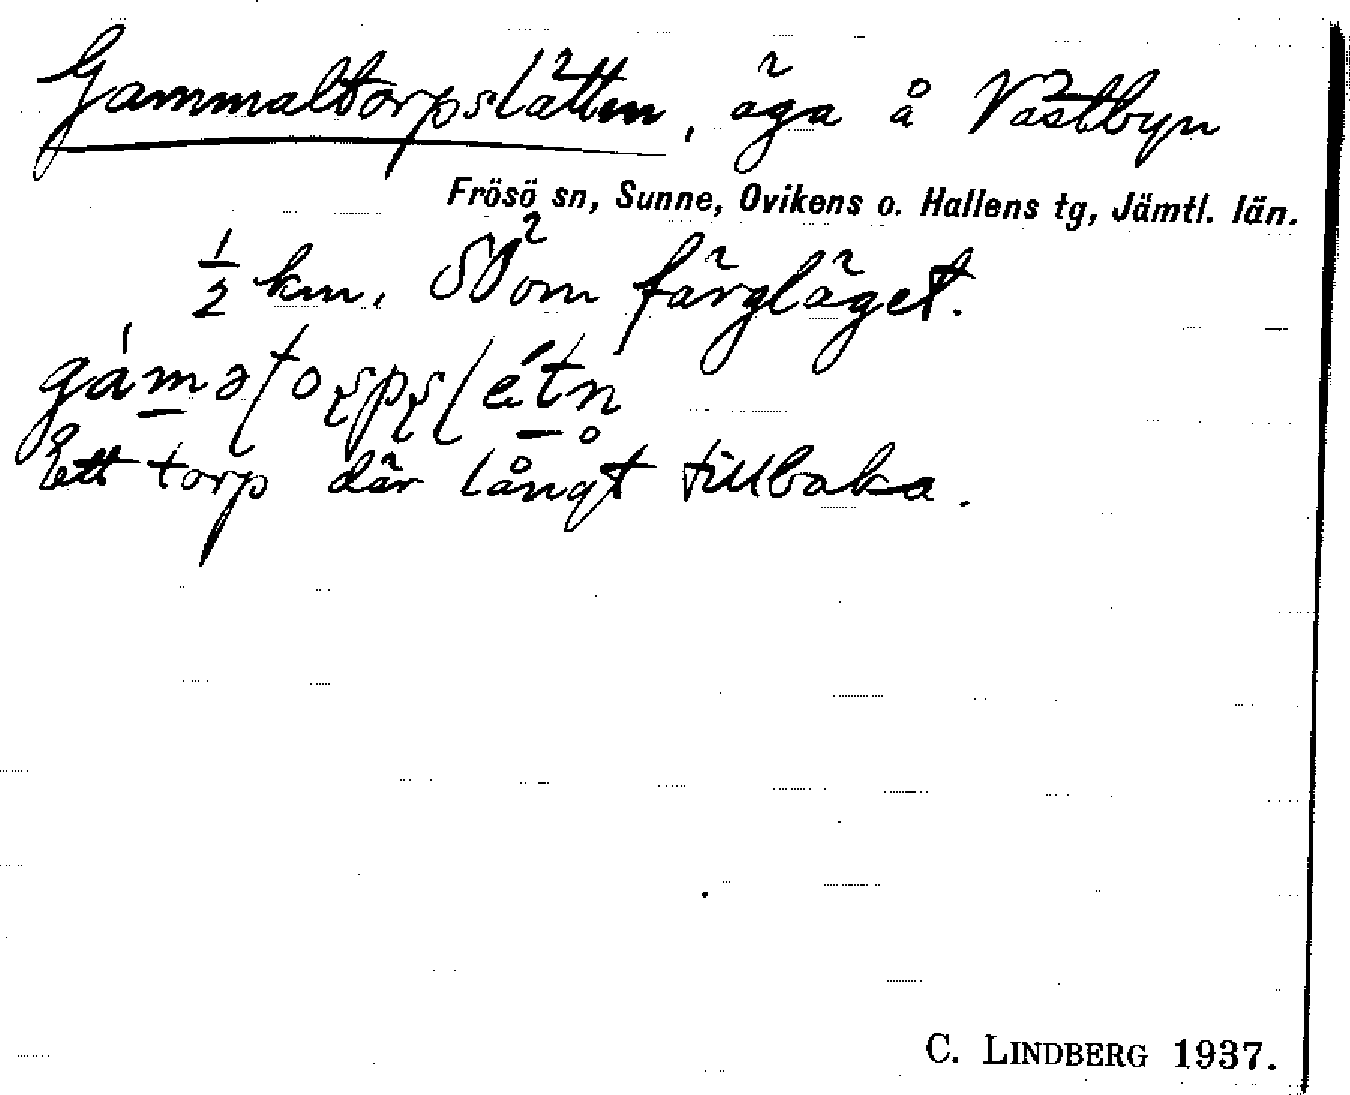 Gammaltorpslätten, äga å Västbyn
Frösö sn, Sunne, Ovikens o. Hallens tg, Jämtl. län.
½ km. SV om färgläget.
Ett torp där långt tillbaka.
C. LINDBERG 1937.